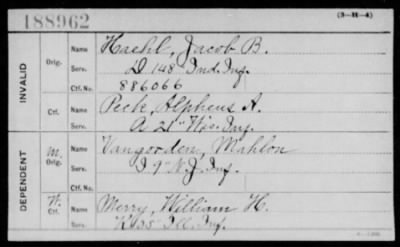 188962
(3-H-4)
INVALID
Orig.
Name Haehl, Jacob B.
Serv. D 148 Ind. Inf.
Ctf. No. 886066
Ctf.
Name Peck, Alpheus A.
Serv. A 21" Wis. Inf.
DEPENDENT
M. Orig.
Name Vangorden, Mahlon
Serv. I 9" N.J. Inf.
Ctf. No.
W. Ctf.
Name Merry, William H.
Serv. K 55 Ill. Inf.